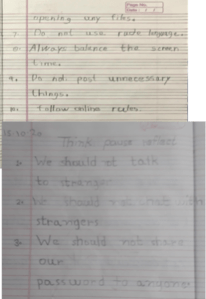 Page No.
Date
opening any files.
7. Do not use rude language.
8. Always balance the screen
time.
9. Do not post unnecessary
things.
10. Follow online rules.
Think power
1. We should not talk
to strangers
2. We should not chat with
strangers
3. We should not share
our
password to anyone